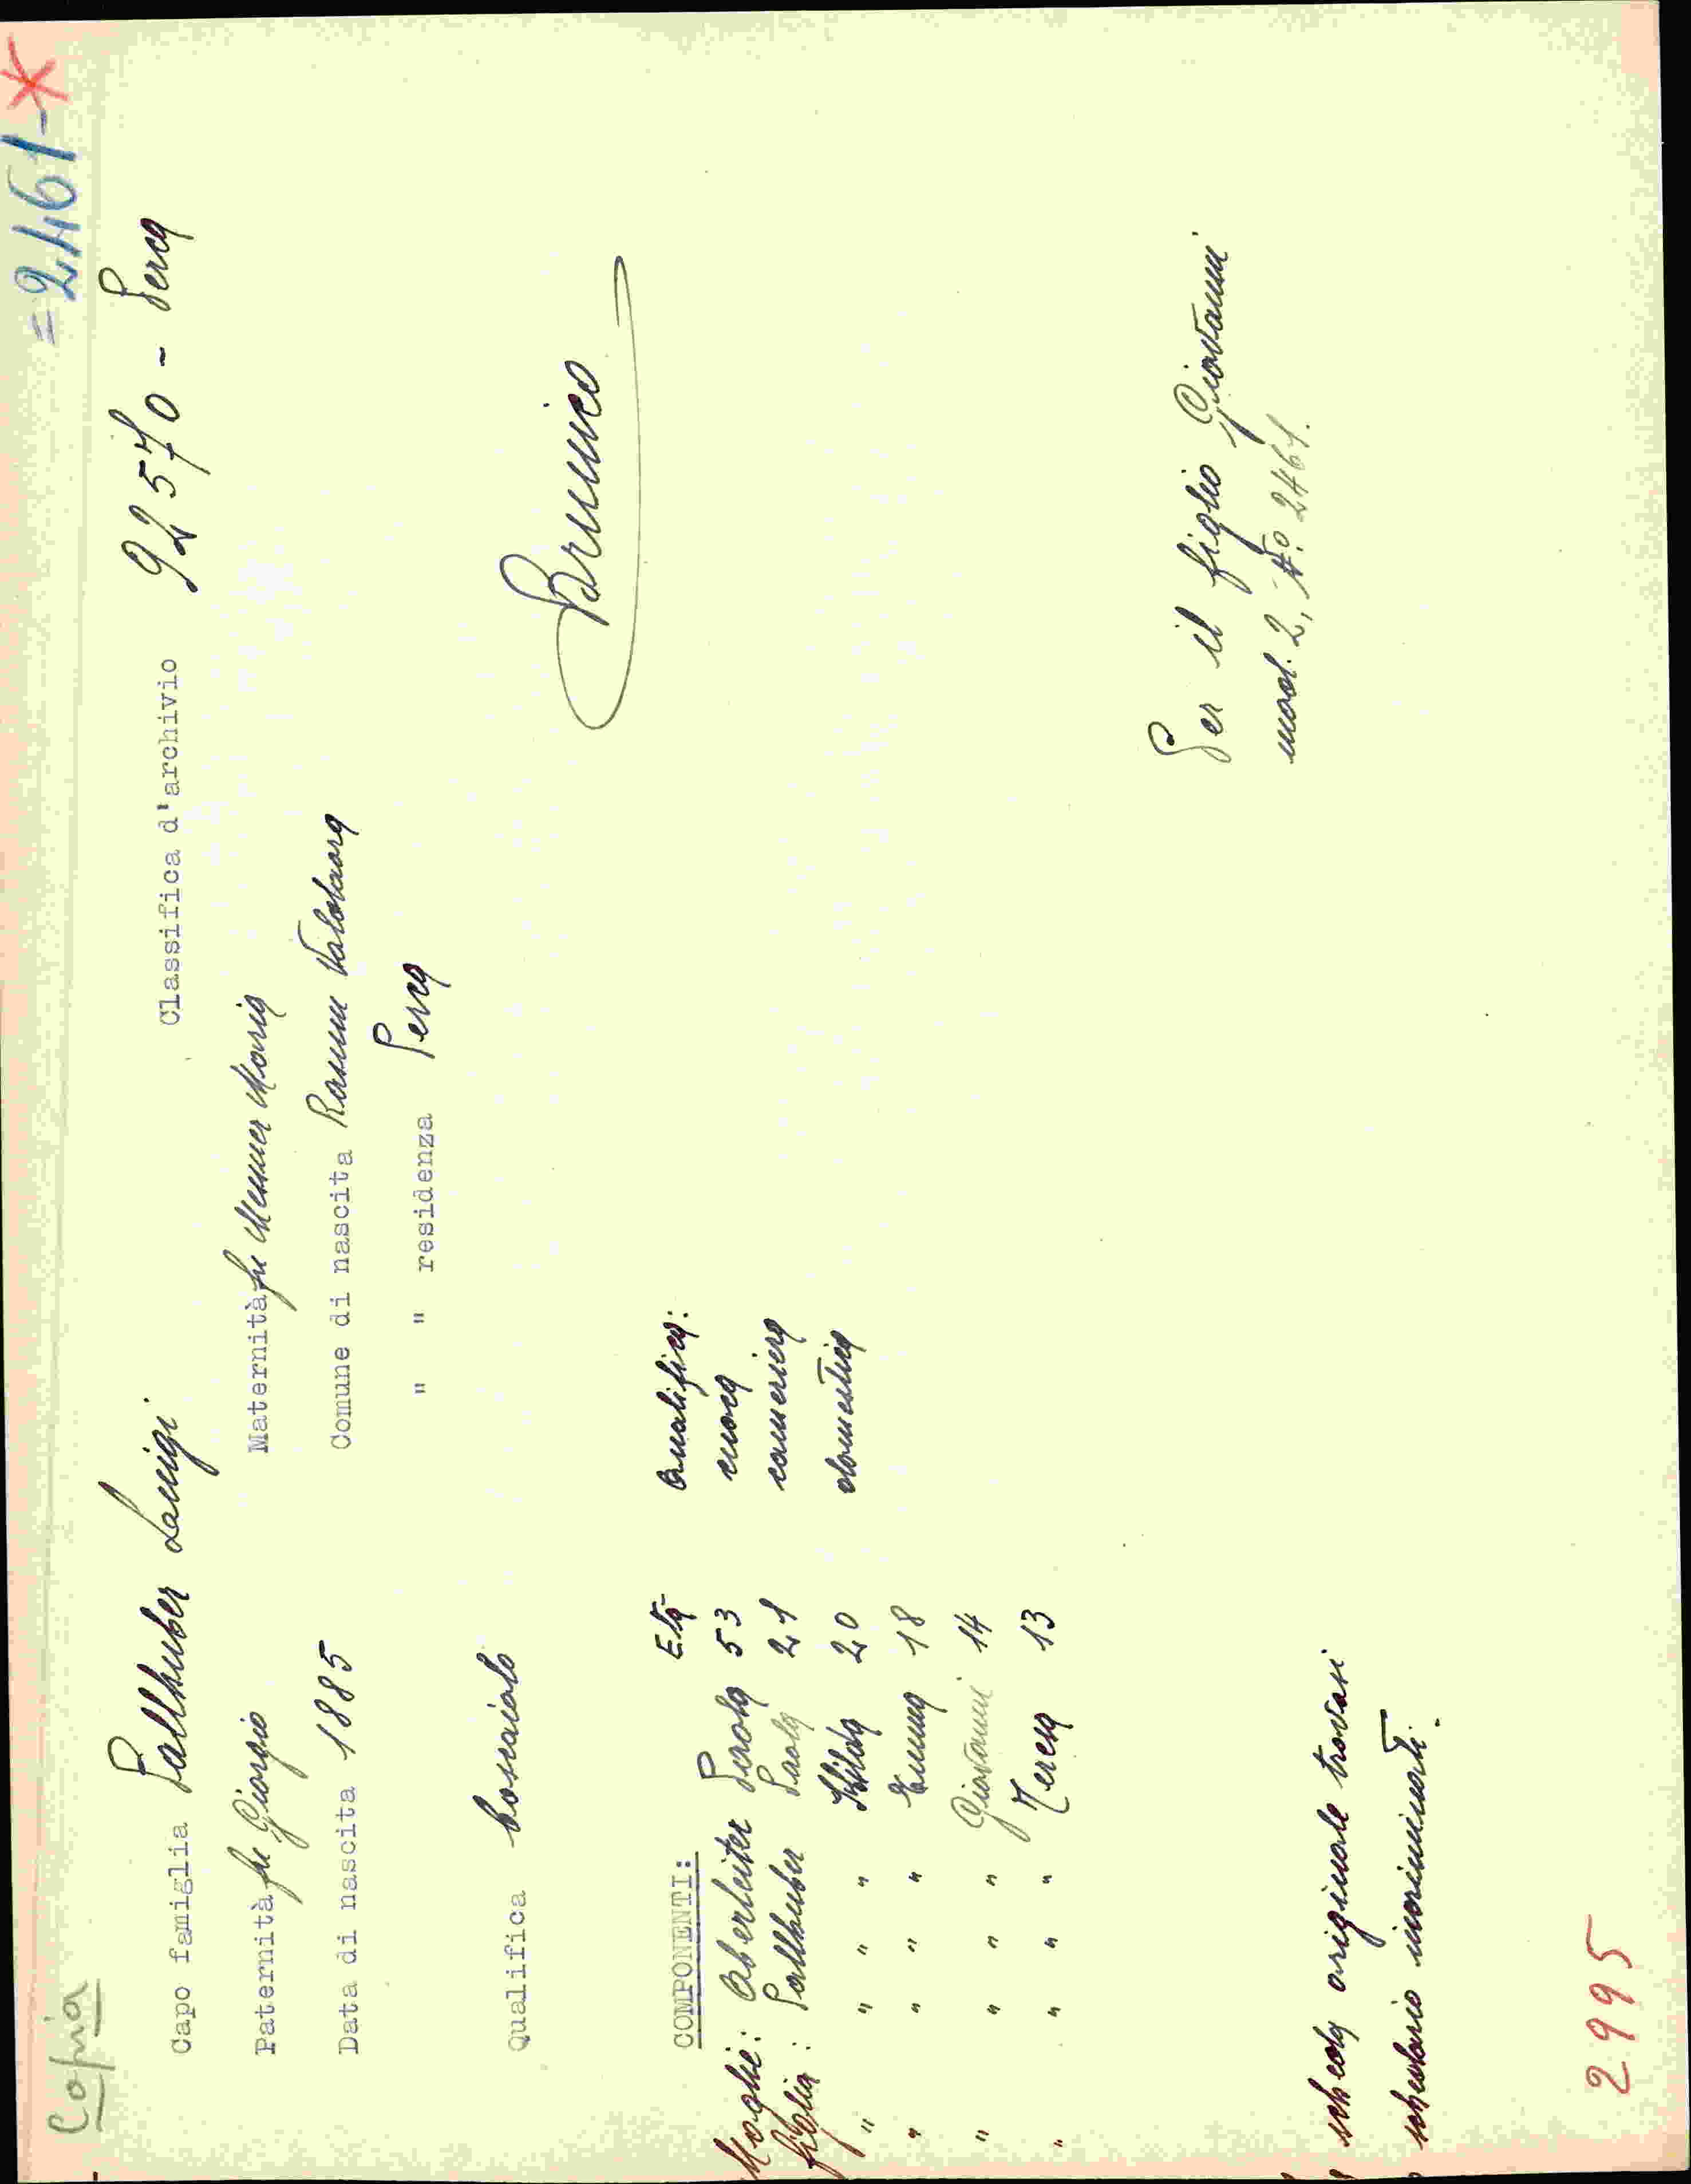 Copia
= 2461 - *
Capo famiglia Pallhuber Luigi Classifica d'archivio 92570 - Perca
Paternità fu Giorgio Maternità fu Messner Maria
Data di nascita 1885 Comune di nascita Rasun Valdaora
" " residenza Perca
Qualifica boscaiolo
Brunico
COMPONENTI: Età Qualifica:
Moglie: Oberleiter Paola 53 cuoca
figlia: Pallhuber Paola 21 cameriera
" " " " Hilda 20 domestica
" " " " Emma 18
" " " " Giovanni 14
" " " " Teresa 13
Per il figlio Giovanni
mod. 2, No 2461.
scheda originale trovasi
schedario incriminati.
2995